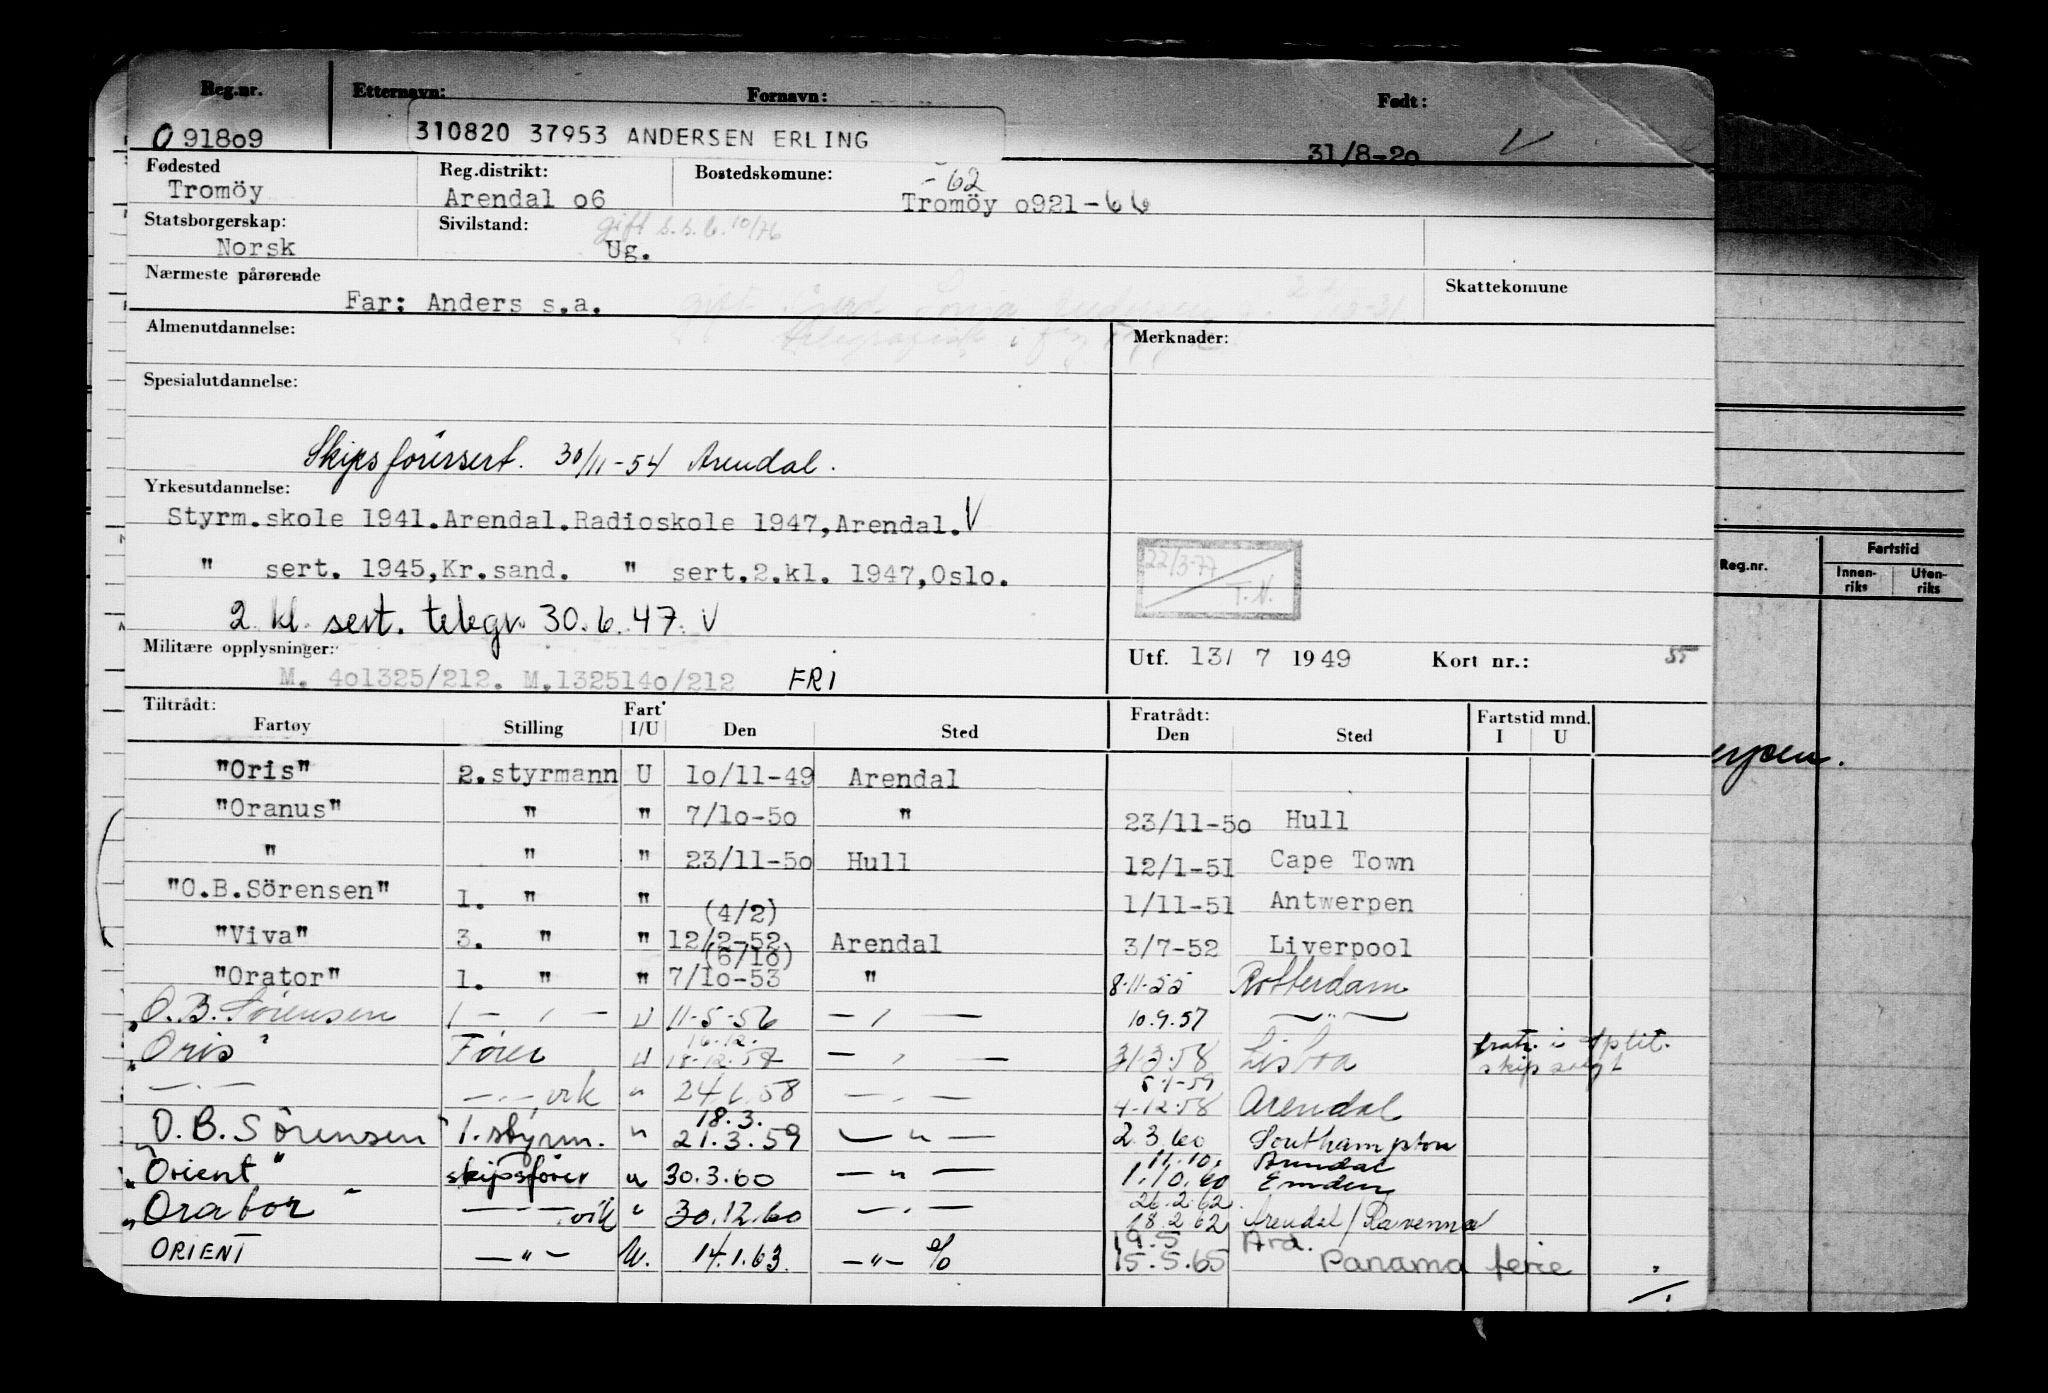 Reg.nr. Etternavn: Fornavn: Født:
091809 310820 37953 ANDERSEN ERLING 31/8-20 V
Fødested Reg.distrikt: Bostedskomune: -62
Tromöy Arendal o6 Tromöy o921-66
Statsborgerskap: Sivilstand: gift s.s.b. 10/76
Norsk Ug.
Nærmeste pårørende Skattekomune
Far: Anders s.a. gift
Almenutdannelse: Merknader:
Spesialutdannelse:
Skipsförersert. 30/11-54 Arendal.
Yrkesutdannelse:
Styrm.skole 1941.Arendal.Radioskole 1947,Arendal. V
" sert. 1945,Kr.sand. " sert.2.kl. 1947,Oslo.
22/3-77 T.N.
2 kl. sert. telegr. 30.6.47. V
Militære opplysninger:
M. 4o1325/212. M.132514o/212 FRI
Utf. 13/ 7 1949 Kort nr.: 55
Tiltrådt: Fratrådt: Fartstid mnd.
Fartøy Stilling Fart I/U Den Sted Den Sted I U
"Oris" 2.styrmann U 1o/11-49 Arendal
"Oranus" " " 7/1o-5o " 23/11-5o Hull
" " " 23/11-5o Hull 12/1-51 Cape Town
"O.B.Sörensen" 1. " " 1/11-51 Antwerpen
(4/2)
"Viva" 3. " " 12/2-52 Arendal 3/7-52 Liverpool
(6/1o)
"Orator" 1. " " 7/1o-53 " 8-11-55 Rotterdam
"O.B. Sörensen 1 — " — U 11-5-56 — " — 10.9.57 — " —
16.12.
"Oris" Förer U 18-12-57 — " — 31.3.58 Lisboa fratr. i Split. skip solgt
5-1-59
— " — — " — vik " 24/6.58 — " — 4-12-58 Arendal
18.3.
"O.B. Sörensen" 1. styrm. " 21.3.59 — " — 2.3.60 Southampton
11.10. Arendal
"Orient" skipsförer " 30.3.60 — " — 1.10.60 Emden
26.2.62
"Orator" — " — vik " 30.12.60 — " — 18.2.62 Arendal / Ravenna
19.5 Ard.
ORIENT — " — U. 14.1.63. — " — 15.5.65 Panama ferie
Reg.nr. Fartstid
Innenriks Utenriks